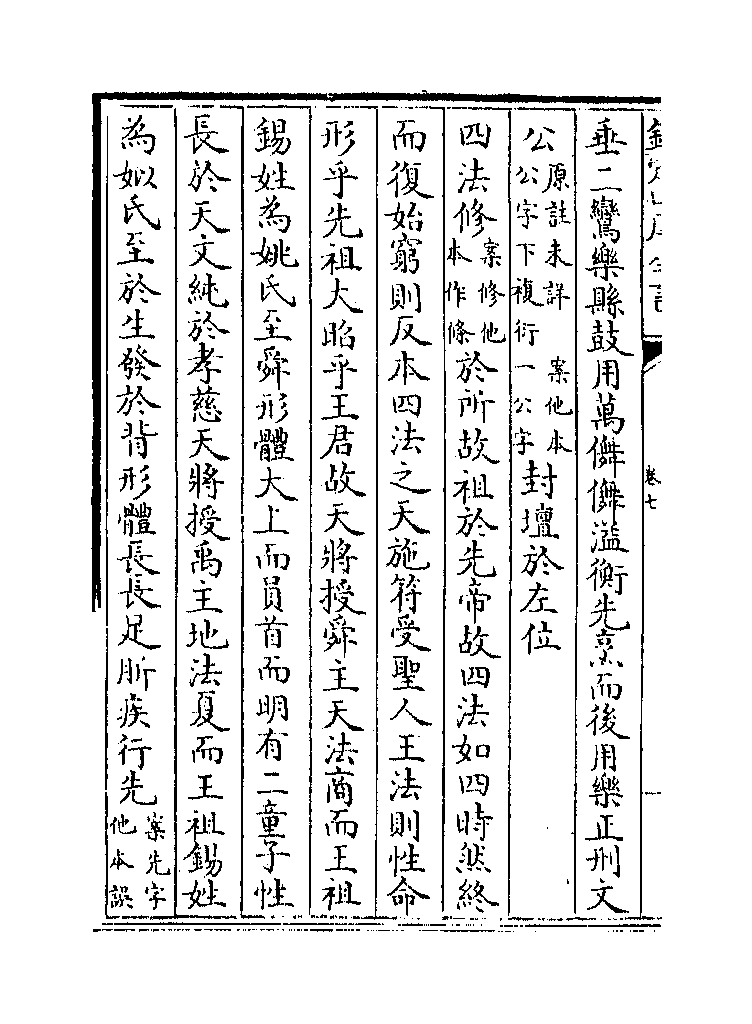 欽定四庫全書
卷七
垂二鸞樂縣鼓用萬儛儛溢衡先烹而後用樂正刑文
公原註未詳　案他本公字下複衍一公字封壇於左位
四法修案修他本作條於所故祖於先帝故四法如四時然終
而復始窮則反本四法之天施符受聖人王法則性命
形乎先祖大昭乎王君故天將授舜主天法商而王祖
錫姓為姚氏至舜形體大上而員首而明有二童子性
長於天文純於孝慈天將授禹主地法夏而王祖錫姓
為姒氏至於生發於背形體長長足肵疾行先案先字他本誤